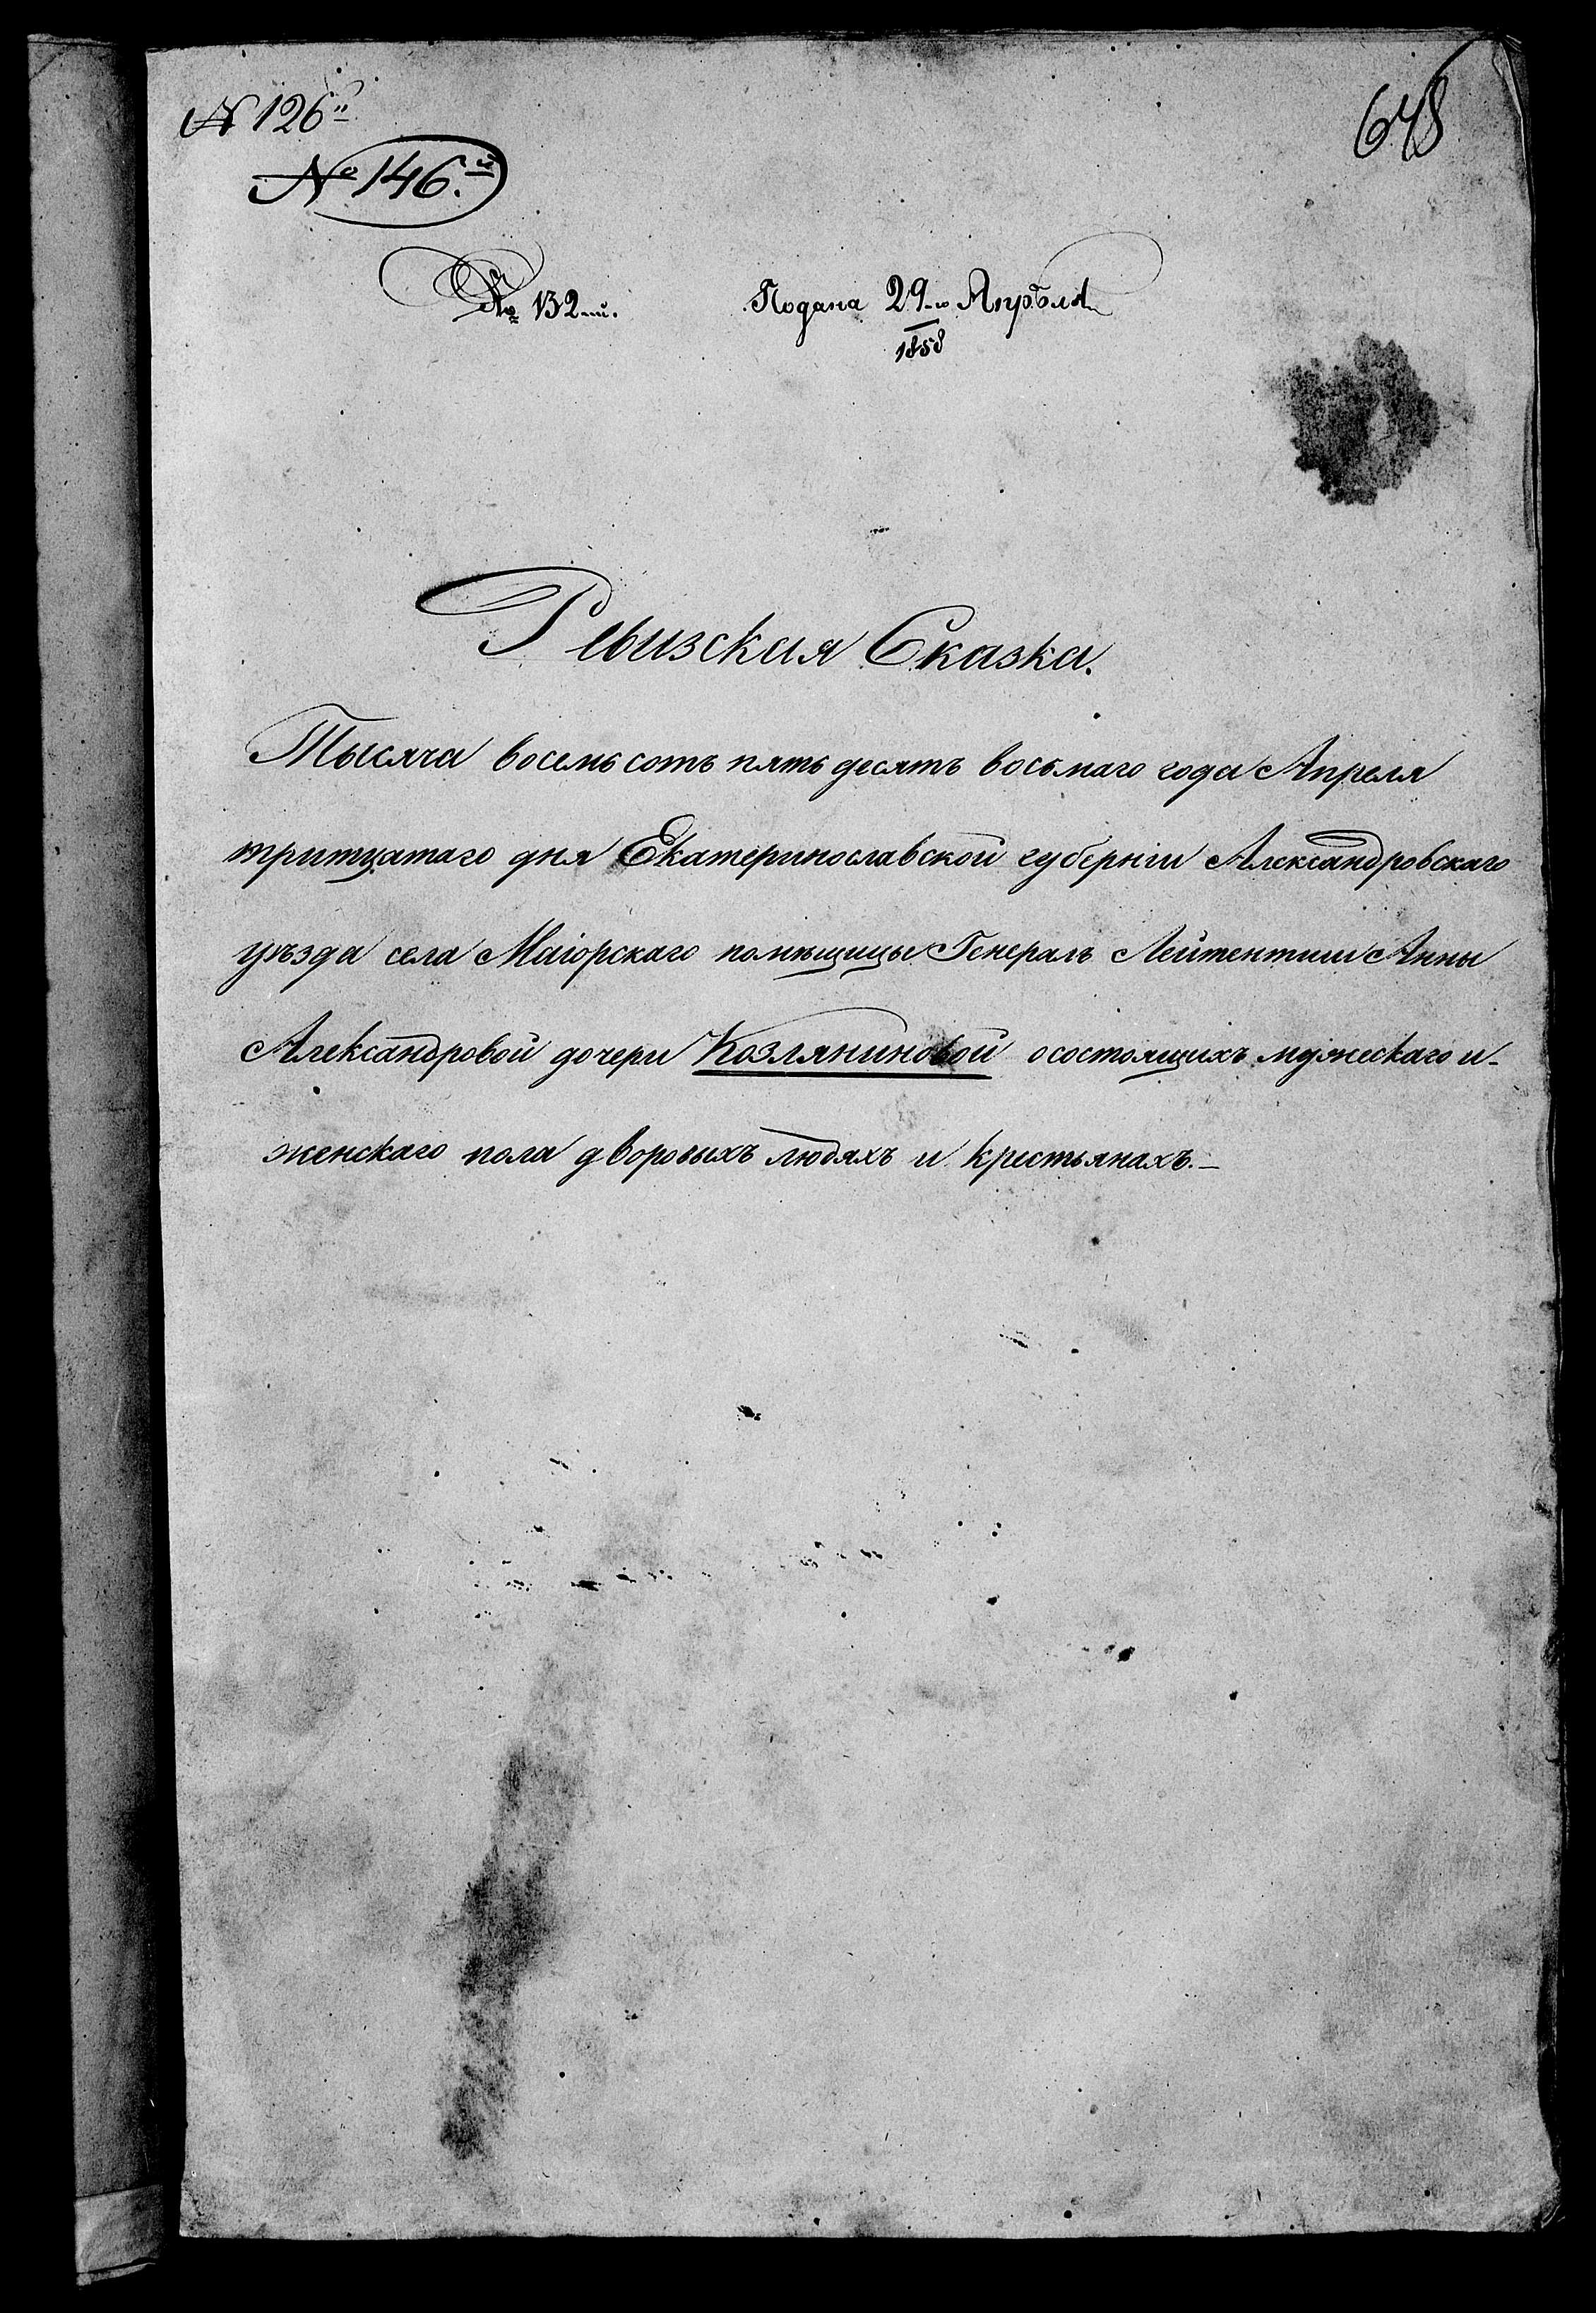 № 126й
648
№ 146.й
№ 132-й.
Подана 29-го Апрѣля
1858
Ревизская Сказка.
Тысяча восемь сотъ пять десятъ восьмаго года Апреля
тритцатаго дня Екатеринославской губерніи Александровскаго
уѣзда села Маіорскаго помѣщицы Генералъ Лейтентши Анны
Александровой дочери Козляниновой осостоящихъ мужескаго и-
женскаго пола дворовыхъ людяхъ и крестьянахъ.-